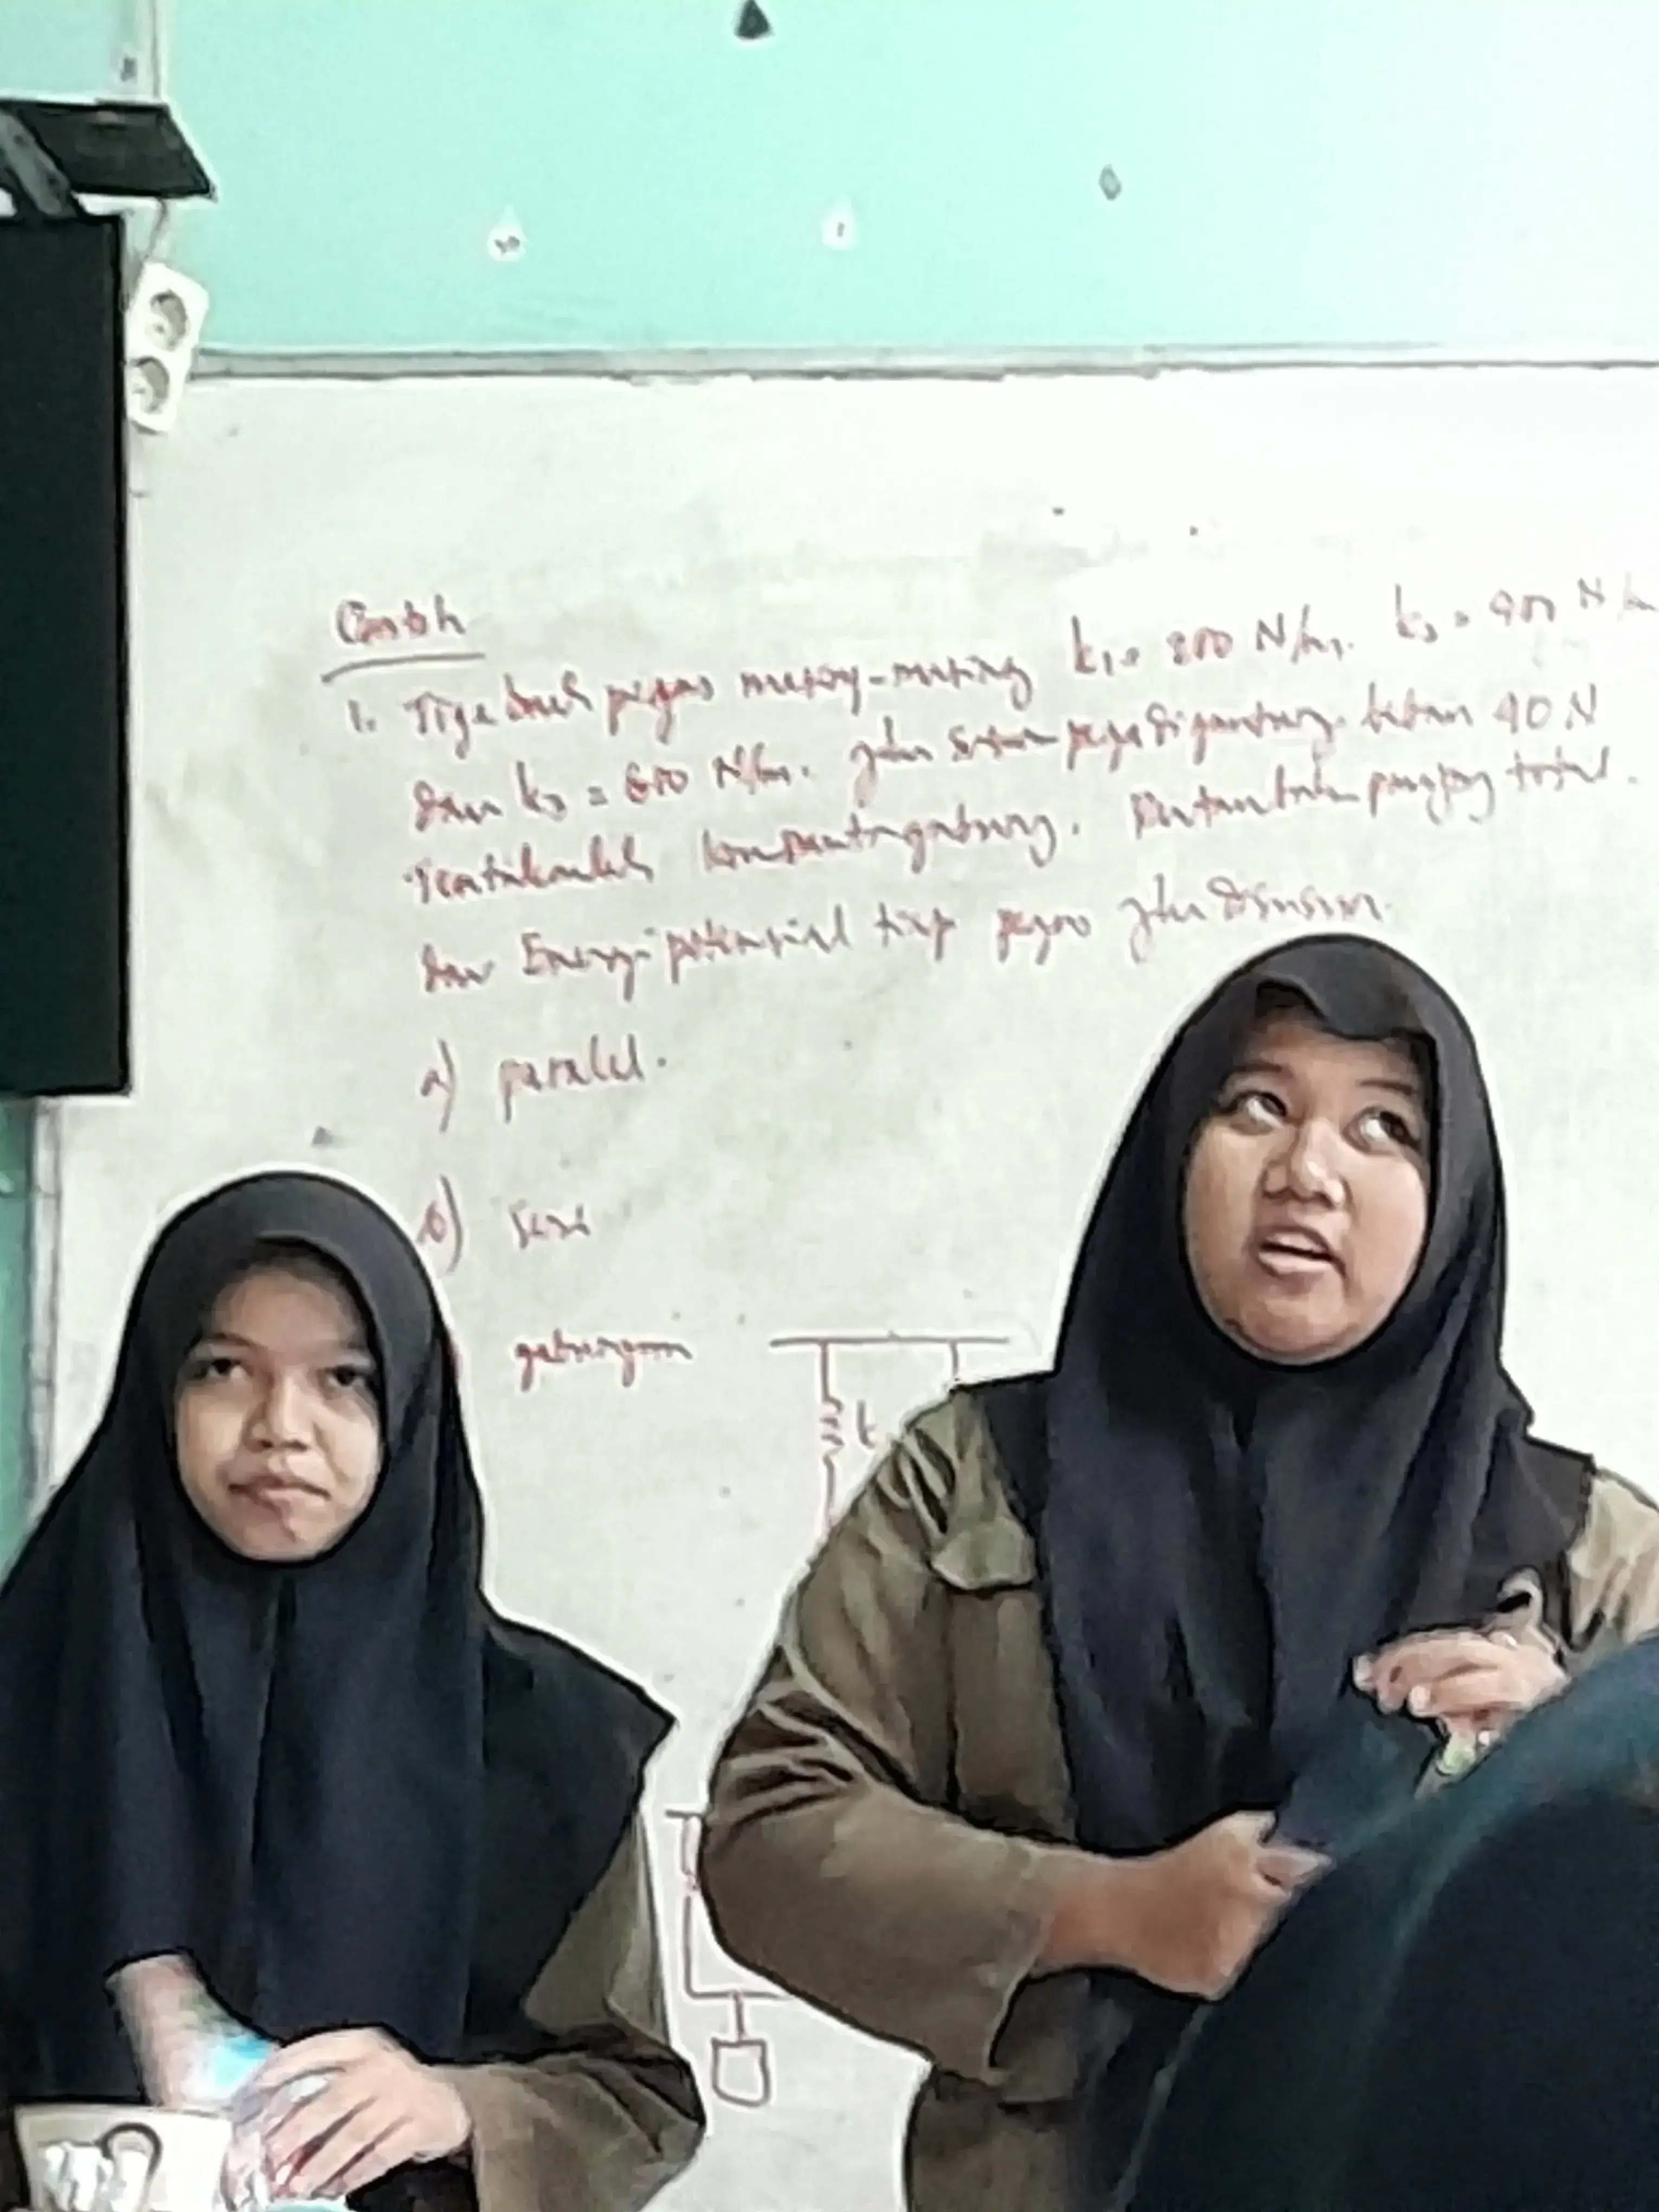 Contoh
1. Tiga buah pegas masing-masing k₁ = 200 N/m. k₂ = 400 N/m
dan k₃ = 600 N/m. jika pegas digantung beban 40 N
Tentukanlah konstanta gabung. Pertambahan panjang total.
dan Energi potensial tiap pegas jika disusun.
a) paralel.
b) seri
gabungan
k